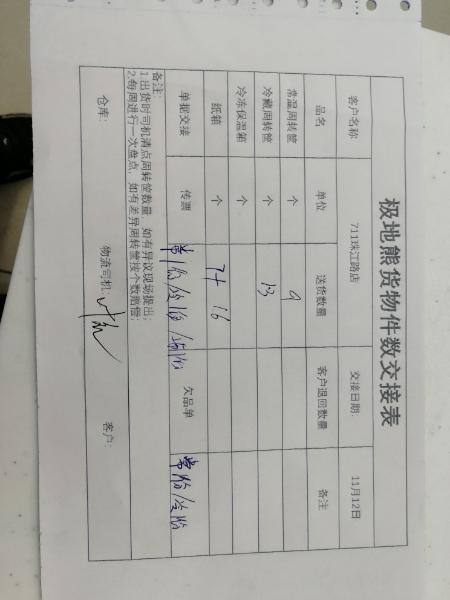 极地熊货物件数交接表
客户名称 711珠江路店 交接日期: 11月12日
品名 单位 送货数量 客户退回数量 备注
常温周转筐 个 9
冷藏周转筐 个 13
冷冻保温箱 个
纸箱 个 7+16
单据交接 传票 欠品单
备注:
1.出货时司机清点周转筐数量,如有异议现场提出;
2.每周进行一次盘点,如有差异周转筐按个数赔偿;
仓库: 物流司机: 客户: